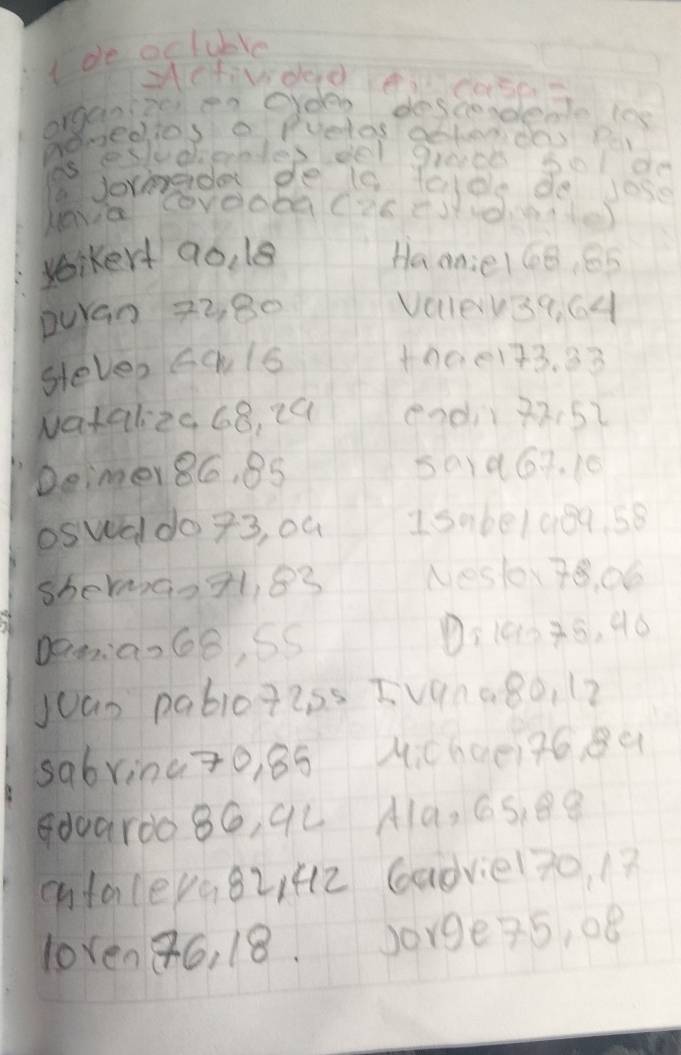 1 de octubre
Actividad en casa
organiza en orden descendente los
promedios o puntos obtenidos por
los estudiantes del grado 501 de
la jornada de la tarde de jose
maria cordoba (26 estudiantes)
yoikert 90,18 Hanniel 68,85
Duran 72,80 Valery 39,64
Steven 69,16 thael 73.33
Nataliza 68,29 endir 77,52
Deimer 86,85 sara 67.10
oswaldo 73,09 Isabela 89,58
sherman 71,83 Nestor 78,06
Damian 68,55 Dilan 75,40
Juan pablo 72,55 Ivana 80,12
sabrina 70,85 Michael 76,89
Eduardo 86,92 Alan 65,88
cataleya 82,42 Gadriel 70,17
loren 76,18. Jorge 75,08